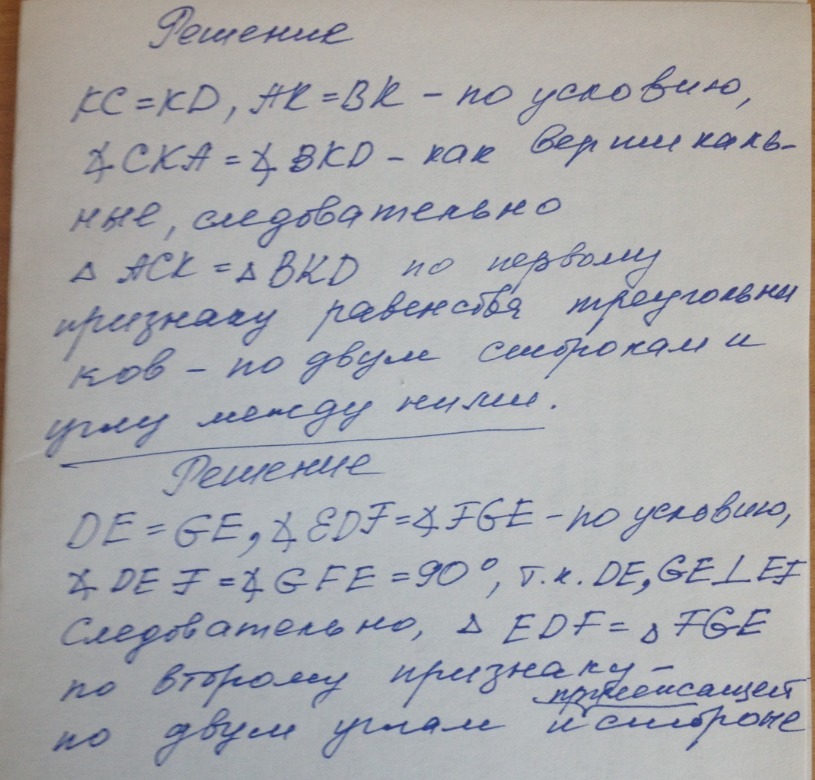 Решение
KC=KD, AK=BK – по условию,
∡CKA=∡BKD – как вертикаль-
ные, следовательно
△ ACK=△BKD по первому
признаку равенства треугольни
ков – по двум сторонам и
углу между ними.
Решение
DE=GE, ∡EDF=∡FGE – по условию,
∡DEF=∡GFE=90°, т.к. DE, GE⊥EF
Следовательно, △ EDF=△FGE
по второму признаку –
прилежащей
по двум углам и стороне